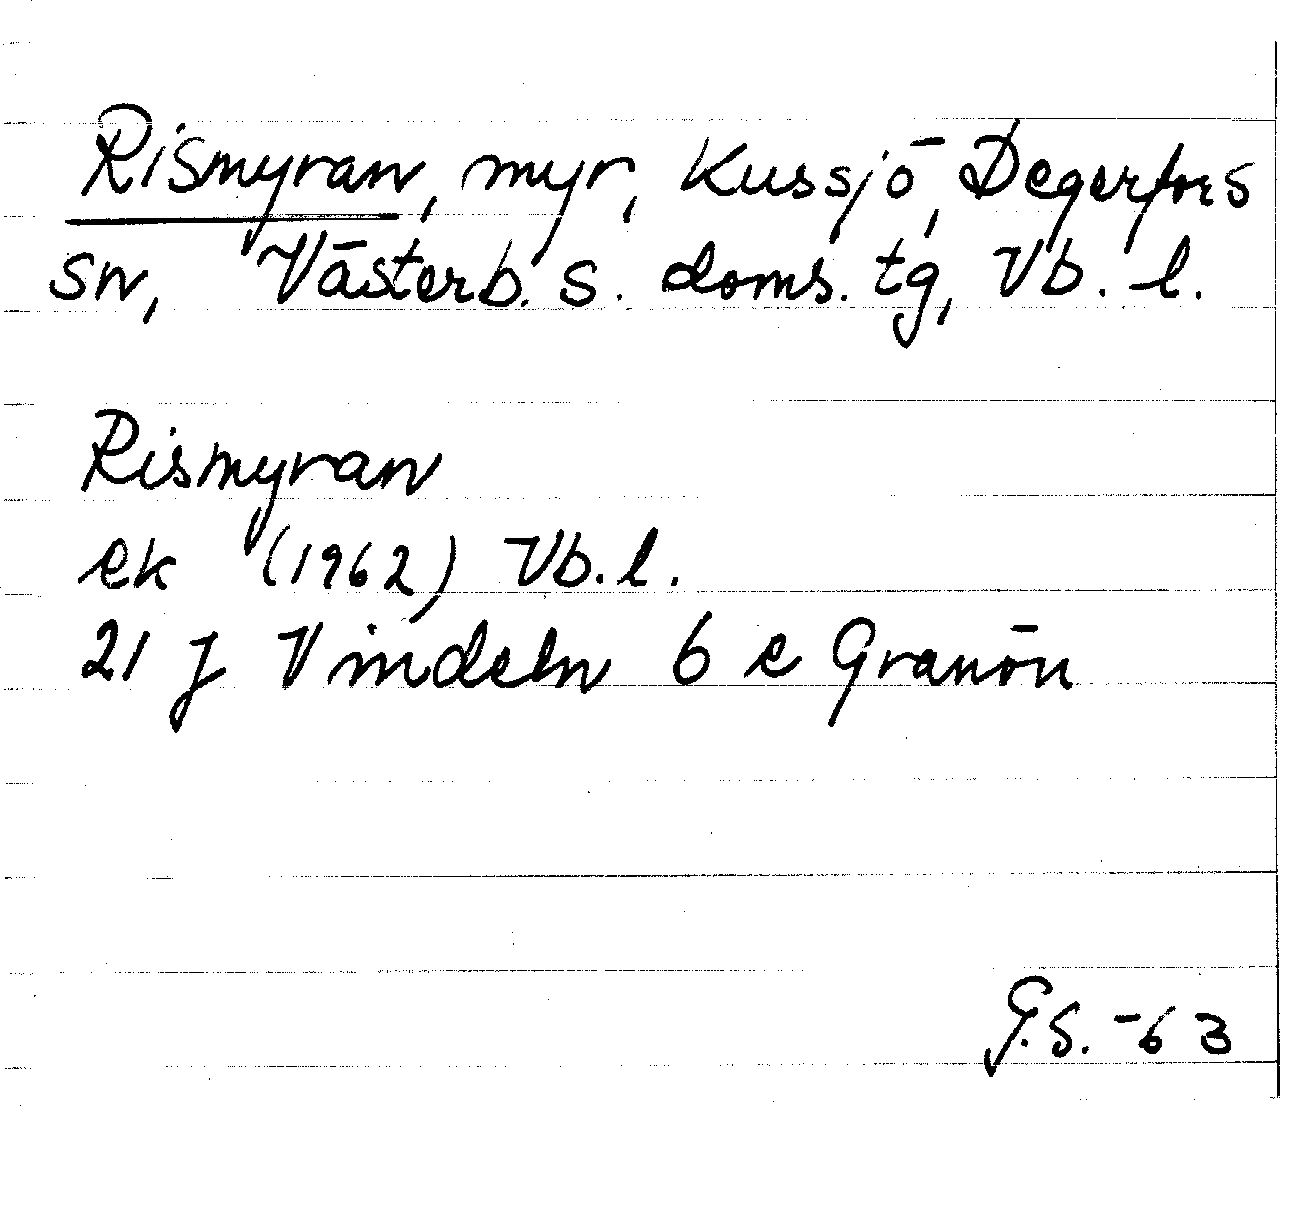 Rismyran, myr, Kussjö, Degerfors
sn, Västerb. s. doms. tg, Vb. l.
Rismyran
ek (1962) Vb. l.
21 J Vindeln 6 e Granön
G.S. -63